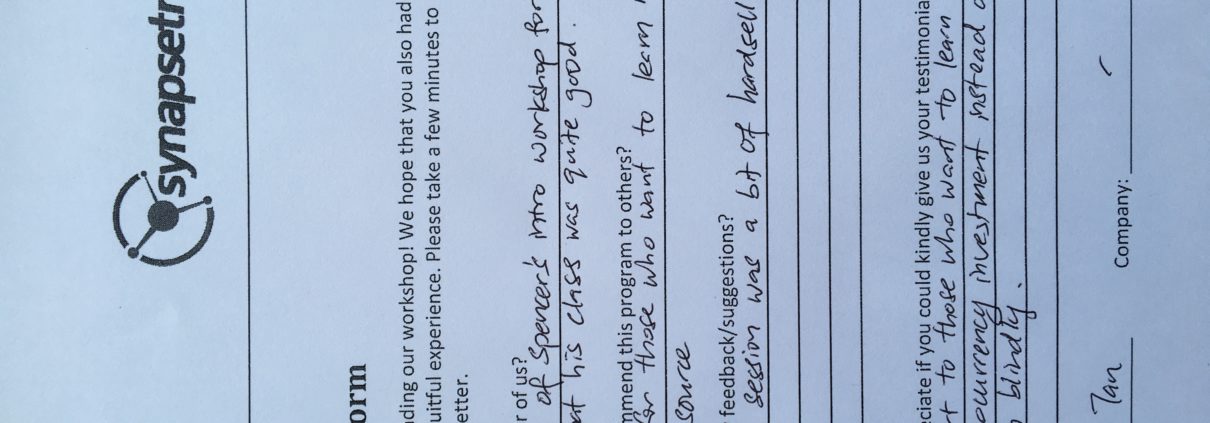 synapsetr
orm
nding our workshop! We hope that you also had
uitful experience. Please take a few minutes to
etter.
r of us?
of Spencer's intro workshop for
at his class was quite good.
mmend this program to others?
for those who want to learn
source
feedback/suggestions?
session was a bit of hardsell
eciate if you could kindly give us your testimonia
t to those who want to learn
ocurrency investment instead o
blindly.
Tan Company: